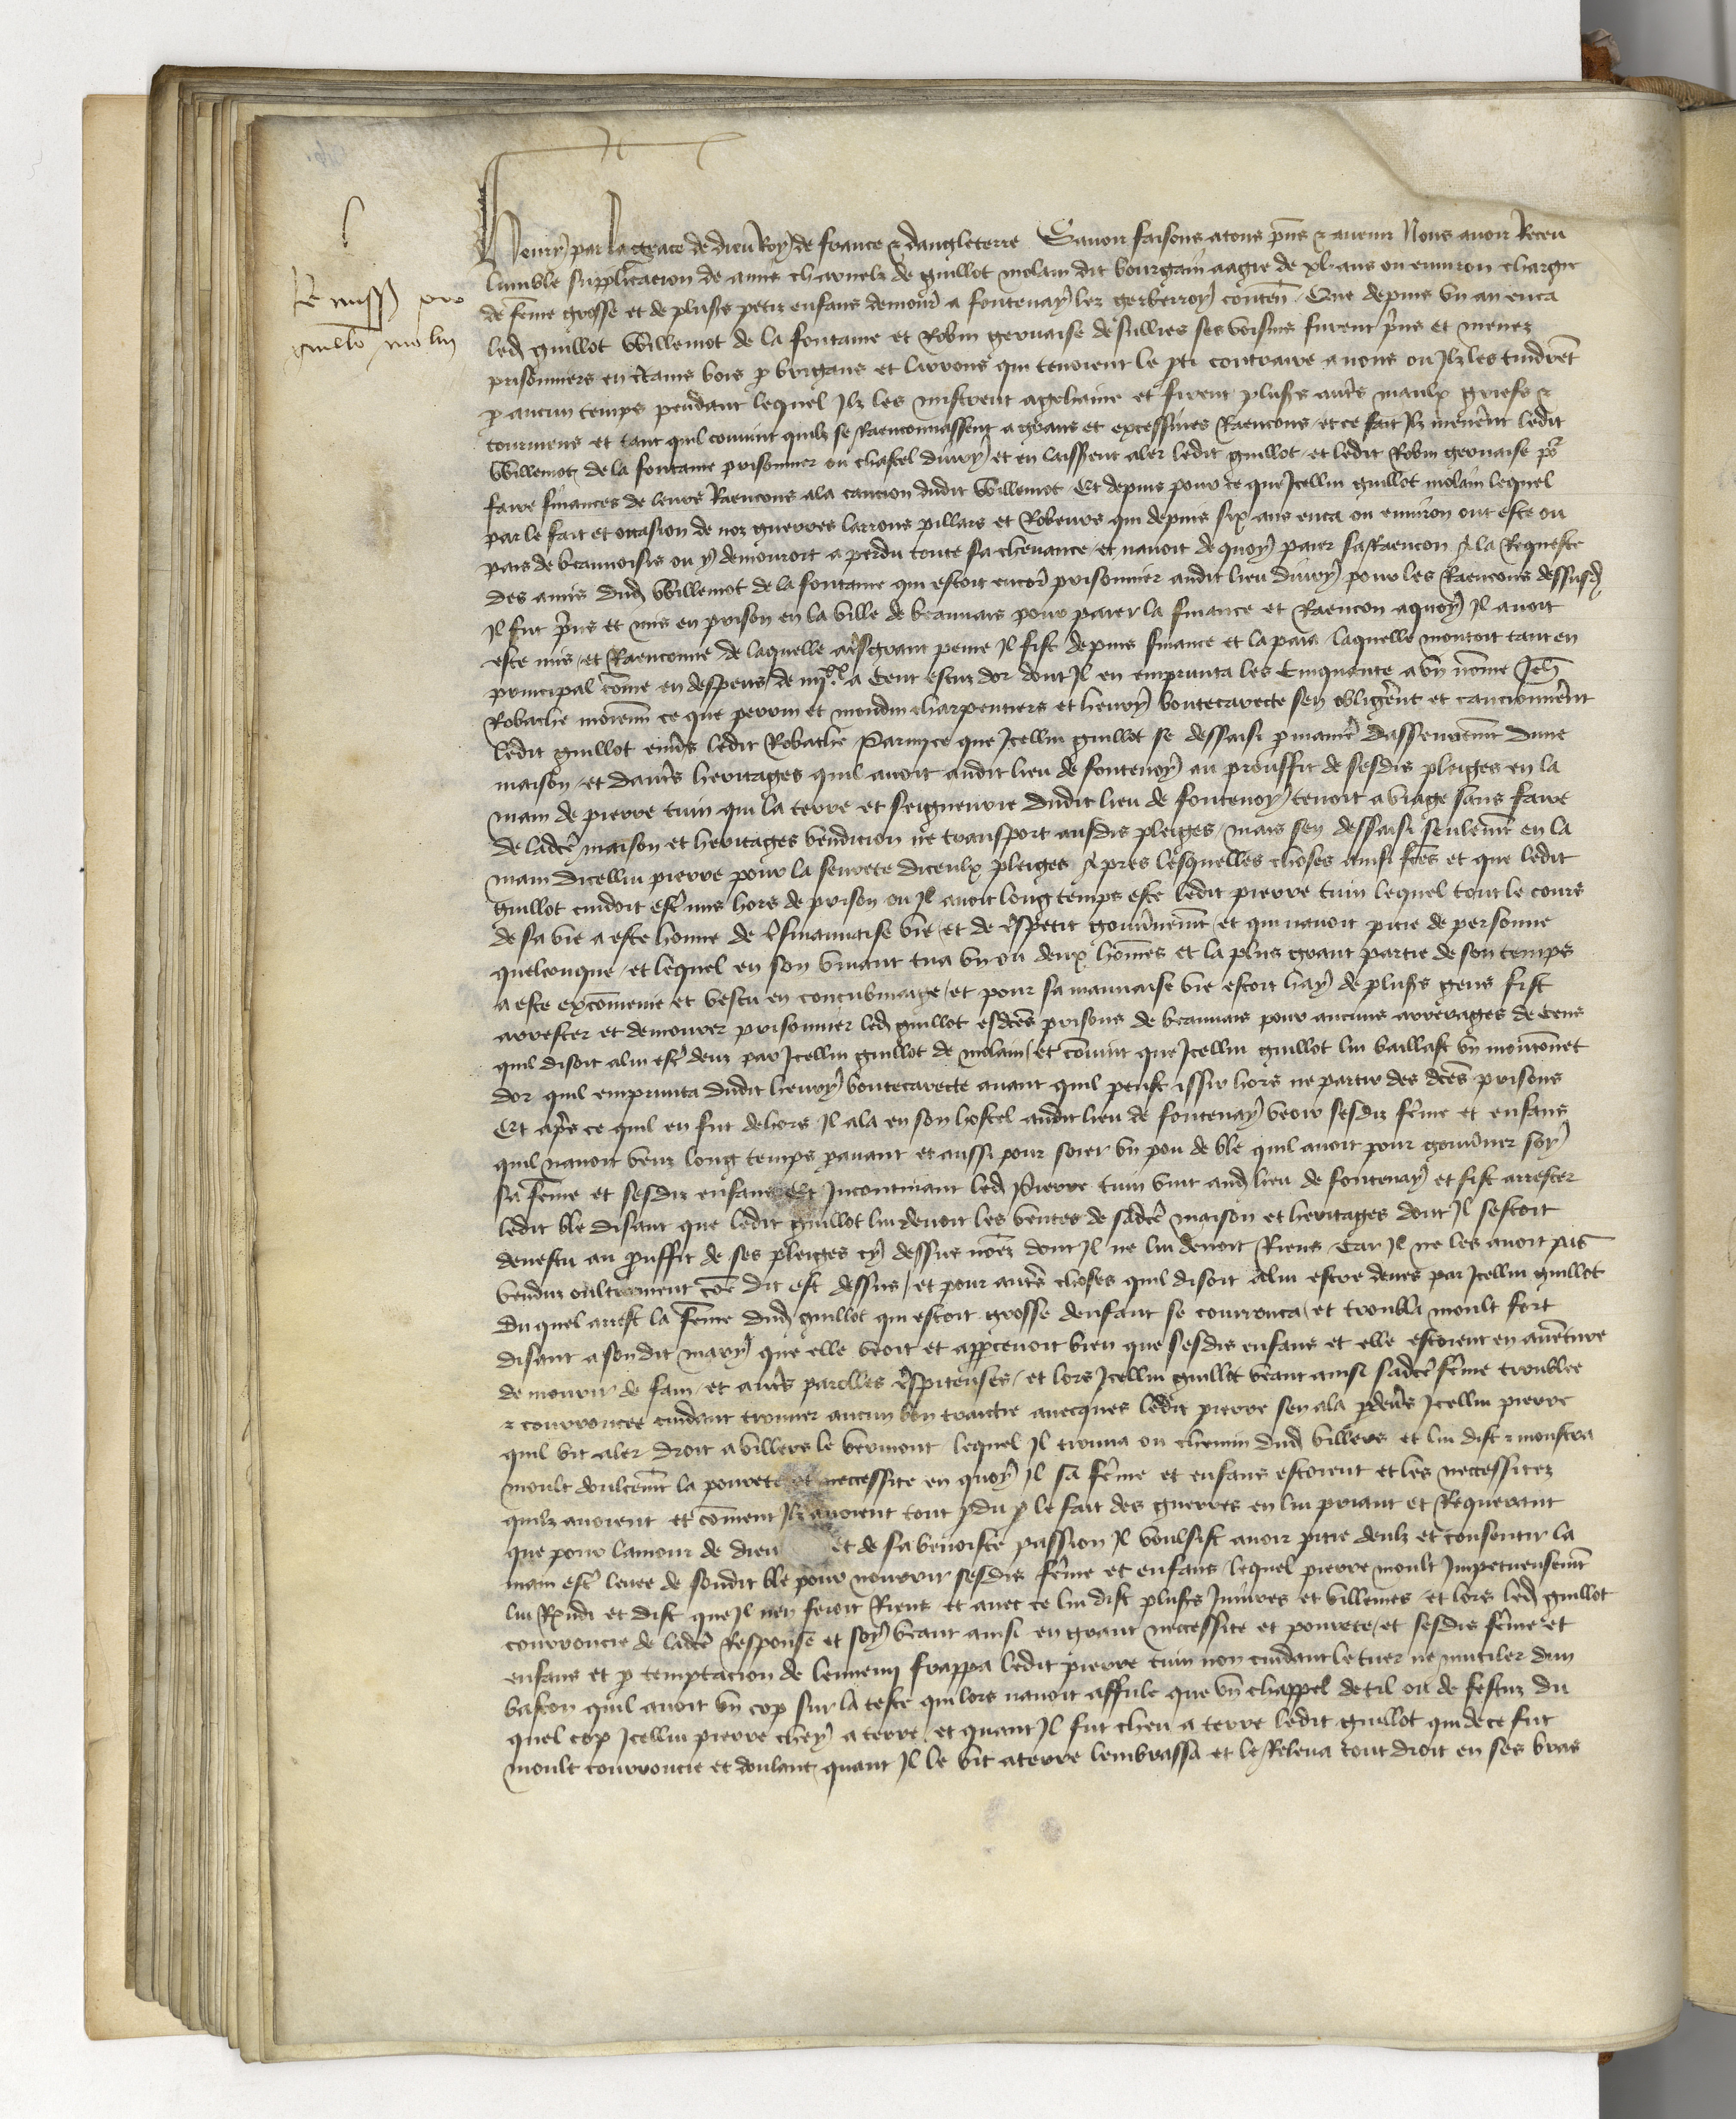 Remiss pro
guillo molin
Henry par la grace de dieu Roy de france & dangleterre Savoir faisons atous pns & avenir Nous avoir Receu
lumble supplicacion de amis charnelz de guillot molain dit bourgain aagie de xl ans ou environ chargie
de feme grosse et de pluss petiz enfans demour a fontenay lez gerberroy conten Que depuis un an enca
led guillot Willemot de la fontaine et Robin gervaise de sullies ses voisins furent prins et menez
prisonniers en ctains bois p brigans et larrons qui tenoient le pti contraire a nous ou Ilz les tindret
p aucun temps pendant lequel Ilz les mistrent a gehaine et firent pluss autrs maulx griefs &
tourmens et tant quil convint quilz se Raenconnassent a grans et excessives Raencons et ce fait Ilz menerent ledit
Willemot de la fontaine prisonnier ou chastel divry et en laisserent aler ledit guillot et ledit Robin gervaise por
faire finances de leurs Raencons ala caucion dudit Willemot Et depuis pour ce que Icellui guillot molain lequel
par le fait et occasion de noz guerres larrons pillars et Robeurs qui depuis six ans enca ou environ ont este ou
pais de beauvoisis ou y demouroit a perdu toute sa chevance et navoit de quoy paier sa Raencon A la Requeste
des amis dud Willemot de la fontaine qui estoit encor prisonnier audit lieu divry pour les Raencons dessusd
Il fut prins et mis en prison en la ville de beauvais pour paier la finance et Raencon aquoy Il avoit
este mis et Raenconne de laquelle a tresgrant peine Il fist depuis finance et la paia laquelle montoit tant en
principal come en despens de iiijxx a Cent escuz dor dont Il en emprunta les Cinquante a un nome Jeh
Robache moienn ce que perrin et mondin charpentiers et henry boutecarecte sen obligerent et caucionnerent
ledit guillot envers ledit Robache Parmy ce que Icellui guillot se dessaisi p maniere dasseurement dune
maison et dautrs heritages quil avoit audit lieu de fontenoy au prouffit de sesdis pleiges en la
main de pierre tuin qui la terre et seigneurie dudit lieu de fontenoy tenoit a viage sans faire
de ladce maison et heritages vendicion ne transport ausdis pleiges mais sen dessaisi seulemt en la
main dicellui pierre pour la seurete diceulx pleiges Apres lesquelles choses ainsi fces et que ledit
guillot cuidoit estre mis hors de prison ou Il avoit long temps este ledit pierre tuin lequel tout le cours
de sa vie a este home de tresmauvaise vie et de trespetit gouvnemt et qui navoit pitie de personne
quelconque et lequel en son vivant tua un ou deux homes et la plus grant partie de son temps
a este excomenie et vescu en concubinage et pour sa mauvaise vie estoit hay de pluss gens fist
arrester et demourer prisonnier led guillot esdces prisons de beauvais pour aucuns arrerages de cens
quil disoit alui estre deuz par Icellui guillot de molain et convint que Icellui guillot lui baillast un moutonnet
dor quil emprunta dudit henry boutecarecte avant quil peust issir hors ne partir des dces prisons
Et aprs ce quil en fut dehors Il ala en son hostel audit lieu de fontenay veoir sesdiz feme et enfans
quil navoit veuz long temps pavant et aussi pour soier un pou de ble quil avoit pour gouvner soy
sa feme et sesdiz enfans Et Incontinant led Pierre tuin vint aud lieu de fontenay et fist arrester
ledit ble disant que ledit guillot lui devoit les ventes de sadce maison et heritages dont Il sestoit
devestu au prouffit de ses pleiges cy dessus nomez dont Il ne lui devoit Riens Car Il ne les avoit pas
venduz oultreement come dit est dessus et pour autrs choses quil disoit alui estre deues par Icellui guillot
Du quel arrest la feme dud guillot qui estoit grosse denfant se courrouca et troubla moult fort
disant a son dit mary que elle veoit et appcevoit bien que sesdis enfans et elle estoient en aventure
de mourir de fain et autrs parolles trespiteuses et lors Icellui guillot veant ainsi sadce feme troublee
& courroucee cuidant trouver aucun bon traictie avecques ledit pierre sen ala pdevers Icellui pierre
quil vit aler droit a villers le vermont lequel Il trouva ou chemin dud villers et lui dist & monstra
moult doulcemt la povrete et neccessite en quoy Il sa feme et enfans estoient et les neccessitez
quilz avoient et coment Ilz avoient tout pdu p le fait des guerres en lui priant et Requerant
que pour lamour de dieu et de sa benoiste passion Il voulsist avoir pitie deulz et consentir la
main estre levee de sondit ble pour nourrir sesdis feme et enfans lequel pierre moult Impetueusemt
lui Rpondi et dist que Il nen feroit Riens et avec ce lui dist pluss Iniures et villenies et lors led guillot
courroucie de ladce Response et soy veant ainsi en grant neccessite et povrete et sesdis feme et
enfans et p temptacion de lennemy frappa ledit pierre tuin non cuidant le tuer ne mutiler dun
baston quil avoit un cop sur la teste qui lors navoit affule que un chappel de til ou de festuz du
quel cop Icellui pierre chey a terre et quant Il fut cheu a terre ledit guillot qui de ce fut
moult courroucie et doulant quant Il le vit aterre lembrassa et le Releva tout droit en ses bras